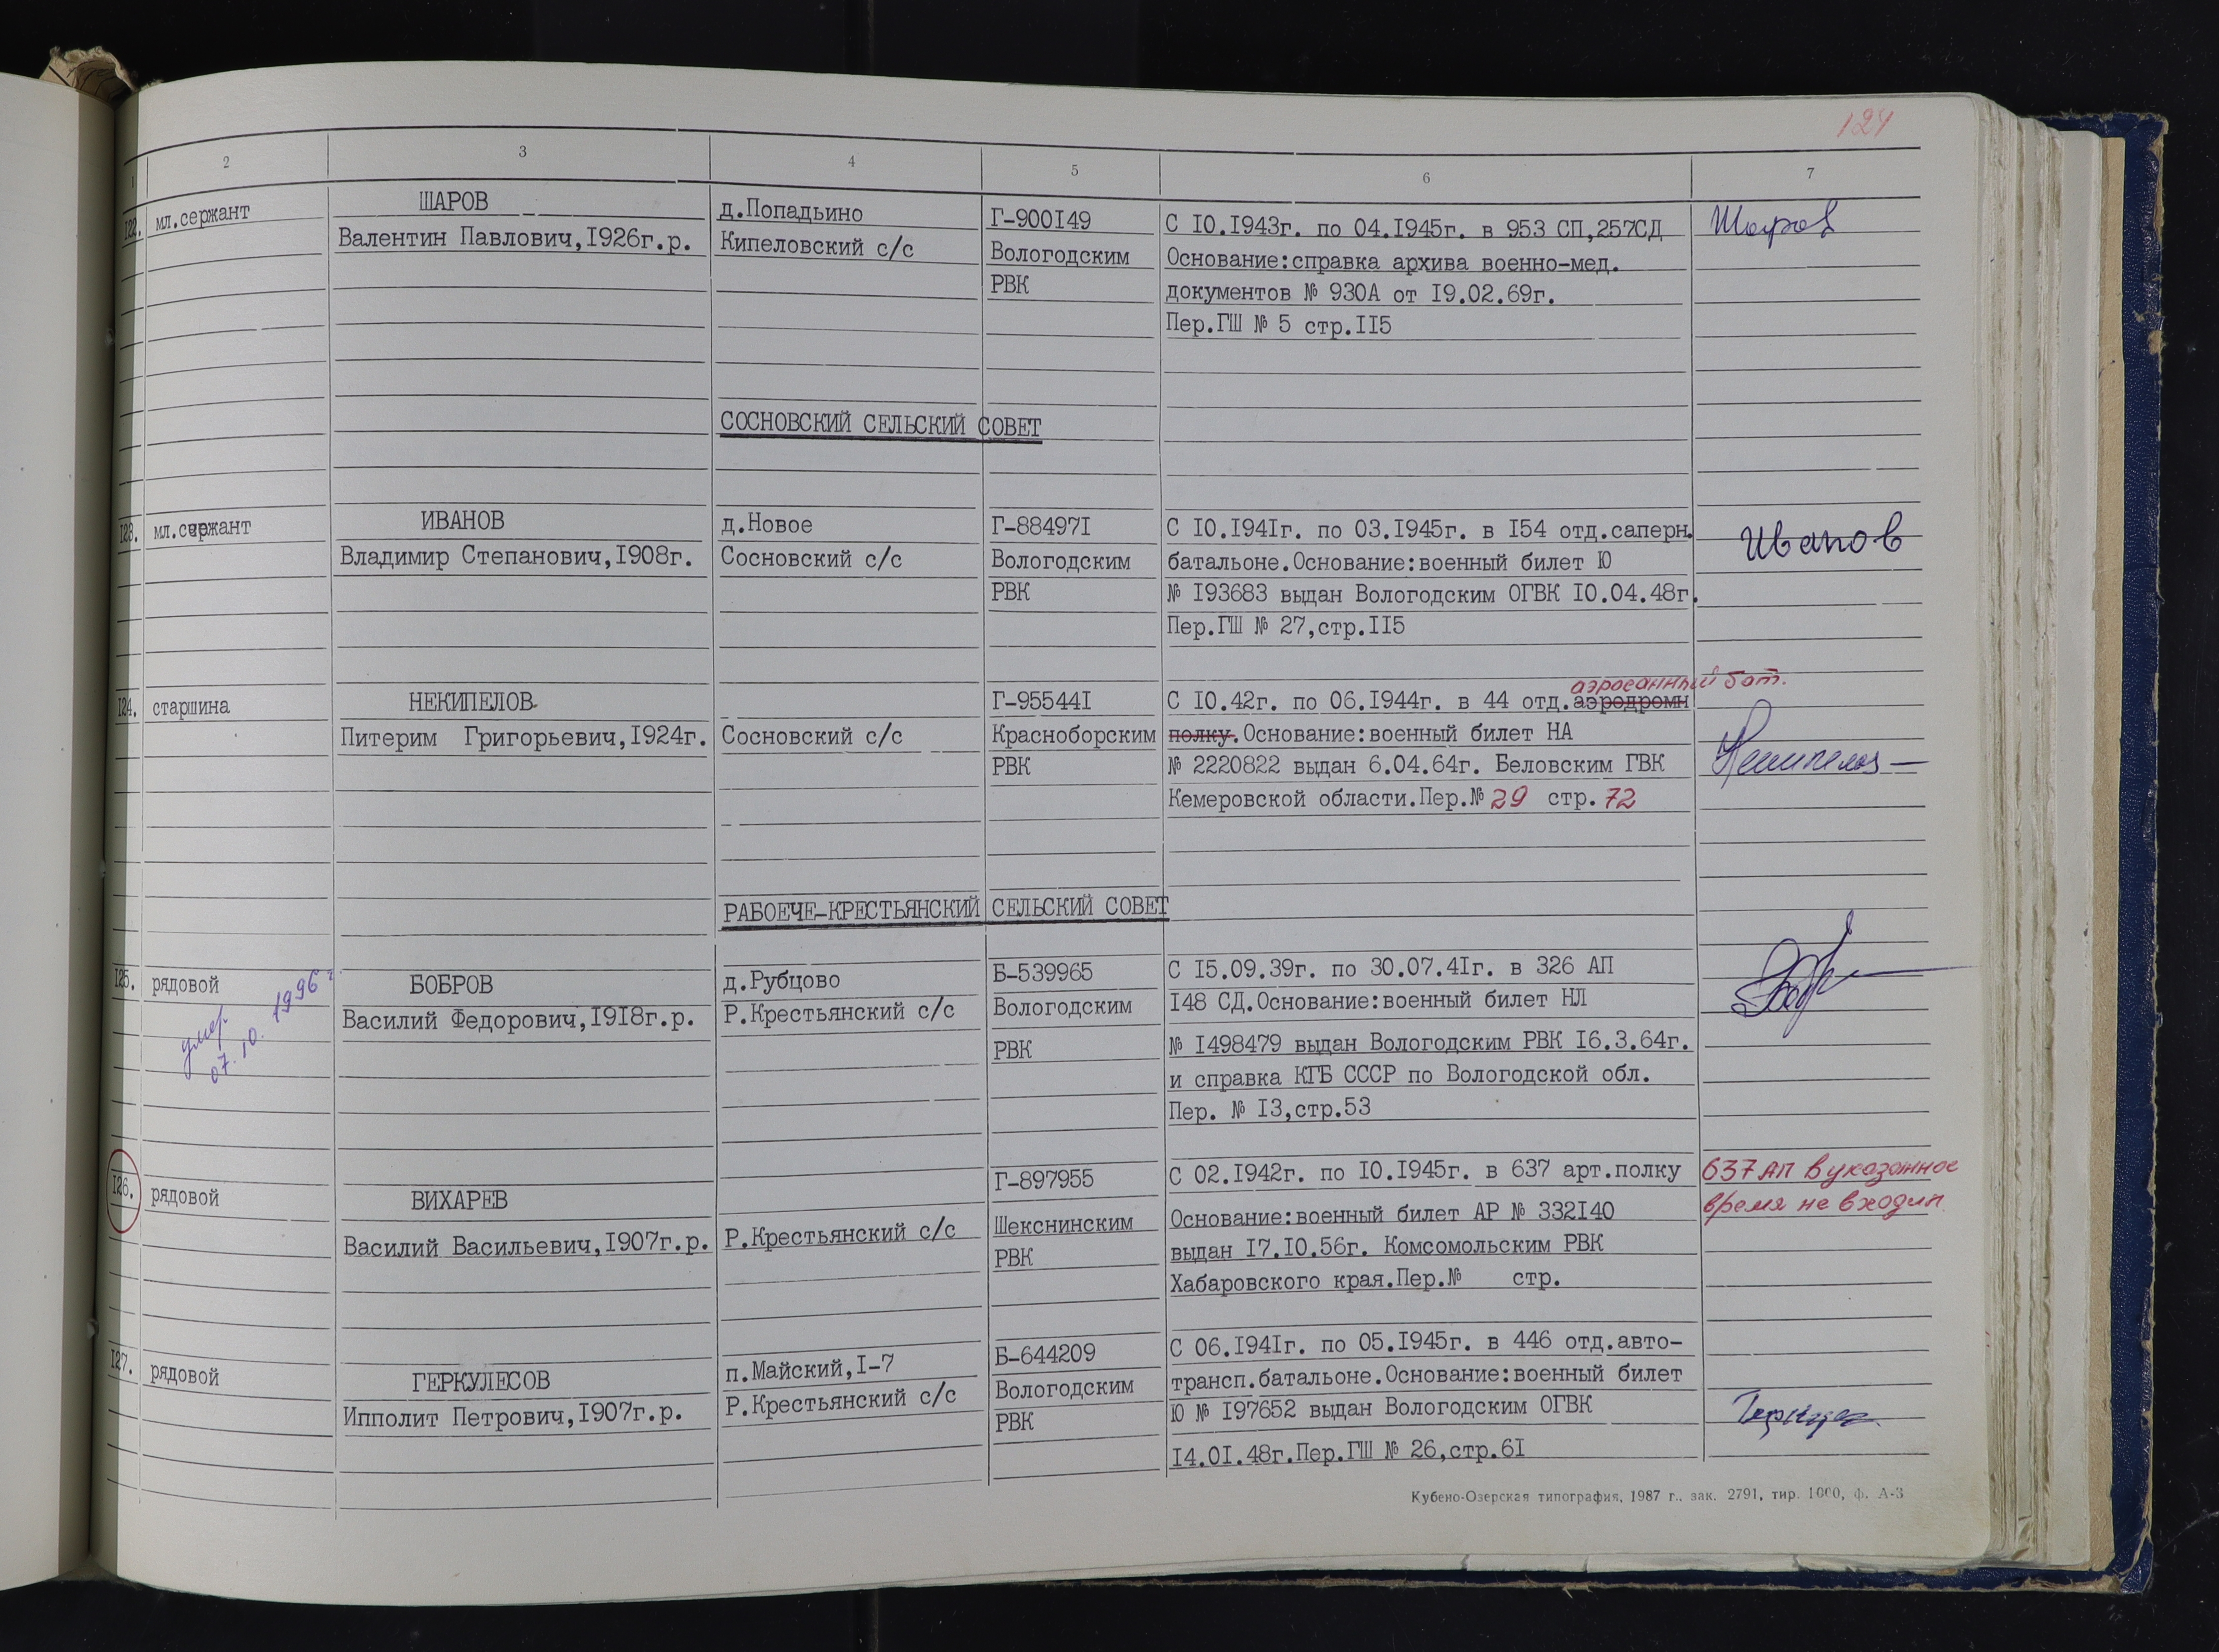 124
1 2 3 4 5 6 7
122. мл.сержант
ШАРОВ
Валентин Павлович,I926г.р.
д.Попадьино
Кипеловский с/с
Г-900I49
Вологодским
РВК
С I0.I943г. по 04.I945г. в 953 СП,257СД
Основание:справка архива военно-мед.
документов № 930А от I9.02.69г.
Пер.ГШ № 5 стр.II5
Шаров
СОСНОВСКИЙ СЕЛЬСКИЙ СОВЕТ
I23. мл.сержант
ИВАНОВ
Владимир Степанович,I908г.
д.Новое
Сосновский с/с
Г-88497I
Вологодским
РВК
С I0.I94Iг. по 03.I945г. в I54 отд.саперн.
батальоне.Основание:военный билет Ю
№ I93683 выдан Вологодским ОГВК I0.04.48г.
Пер.ГШ № 27,стр.II5
Иванов
I24. старшина
НЕКИПЕЛОВ
Питерим Григорьевич,I924г.
Сосновский с/с
Г-95544I
Красноборским
РВК
аэросанный бат.
С I0.42г. по 06.I944г. в 44 отд.аэродромн
полку.Основание:военный билет НА
№ 2220822 выдан 6.04.64г. Беловским ГВК
Кемеровской области.Пер.№ 29 стр. 72
Некипелов
РАБОЕЧЕ-КРЕСТЬЯНСКИЙ СЕЛЬСКИЙ СОВЕТ
I25. рядовой
умер.
07.10. 1996 г.
БОБРОВ
Василий Федорович,I9I8г.р.
д.Рубцово
Р.Крестьянский с/с
Б-539965
Вологодским
РВК
С I5.09.39г. по 30.07.4Iг. в 326 АП
I48 СД.Основание:военный билет НЛ
№ I498479 выдан Вологодским РВК I6.3.64г.
и справка КГБ СССР по Вологодской обл.
Пер. № I3,стр.53
I26. рядовой
ВИХАРЕВ
Василий Васильевич,I907г.р.
Р.Крестьянский с/с
Г-897955
Шекснинским
РВК
С 02.I942г. по I0.I945г. в 637 арт.полку
Основание:военный билет АР № 332I40
выдан I7.I0.56г. Комсомольским РВК
Хабаровского края.Пер.№ стр.
637 АП в указанное
время не входил
I27. рядовой
ГЕРКУЛЕСОВ
Ипполит Петрович,I907г.р.
п.Майский,I-7
Р.Крестьянский с/с
Б-644209
Вологодским
РВК
С 06.I94Iг. по 05.I945г. в 446 отд.авто-
трансп.батальоне.Основание:военный билет
Ю № I97652 выдан Вологодским ОГВК
I4.0I.48г.Пер.ГШ № 26,стр.6I
Кубено-Озерская типография, 1987 г., зак. 2791, тир. 1000, ф. А-3